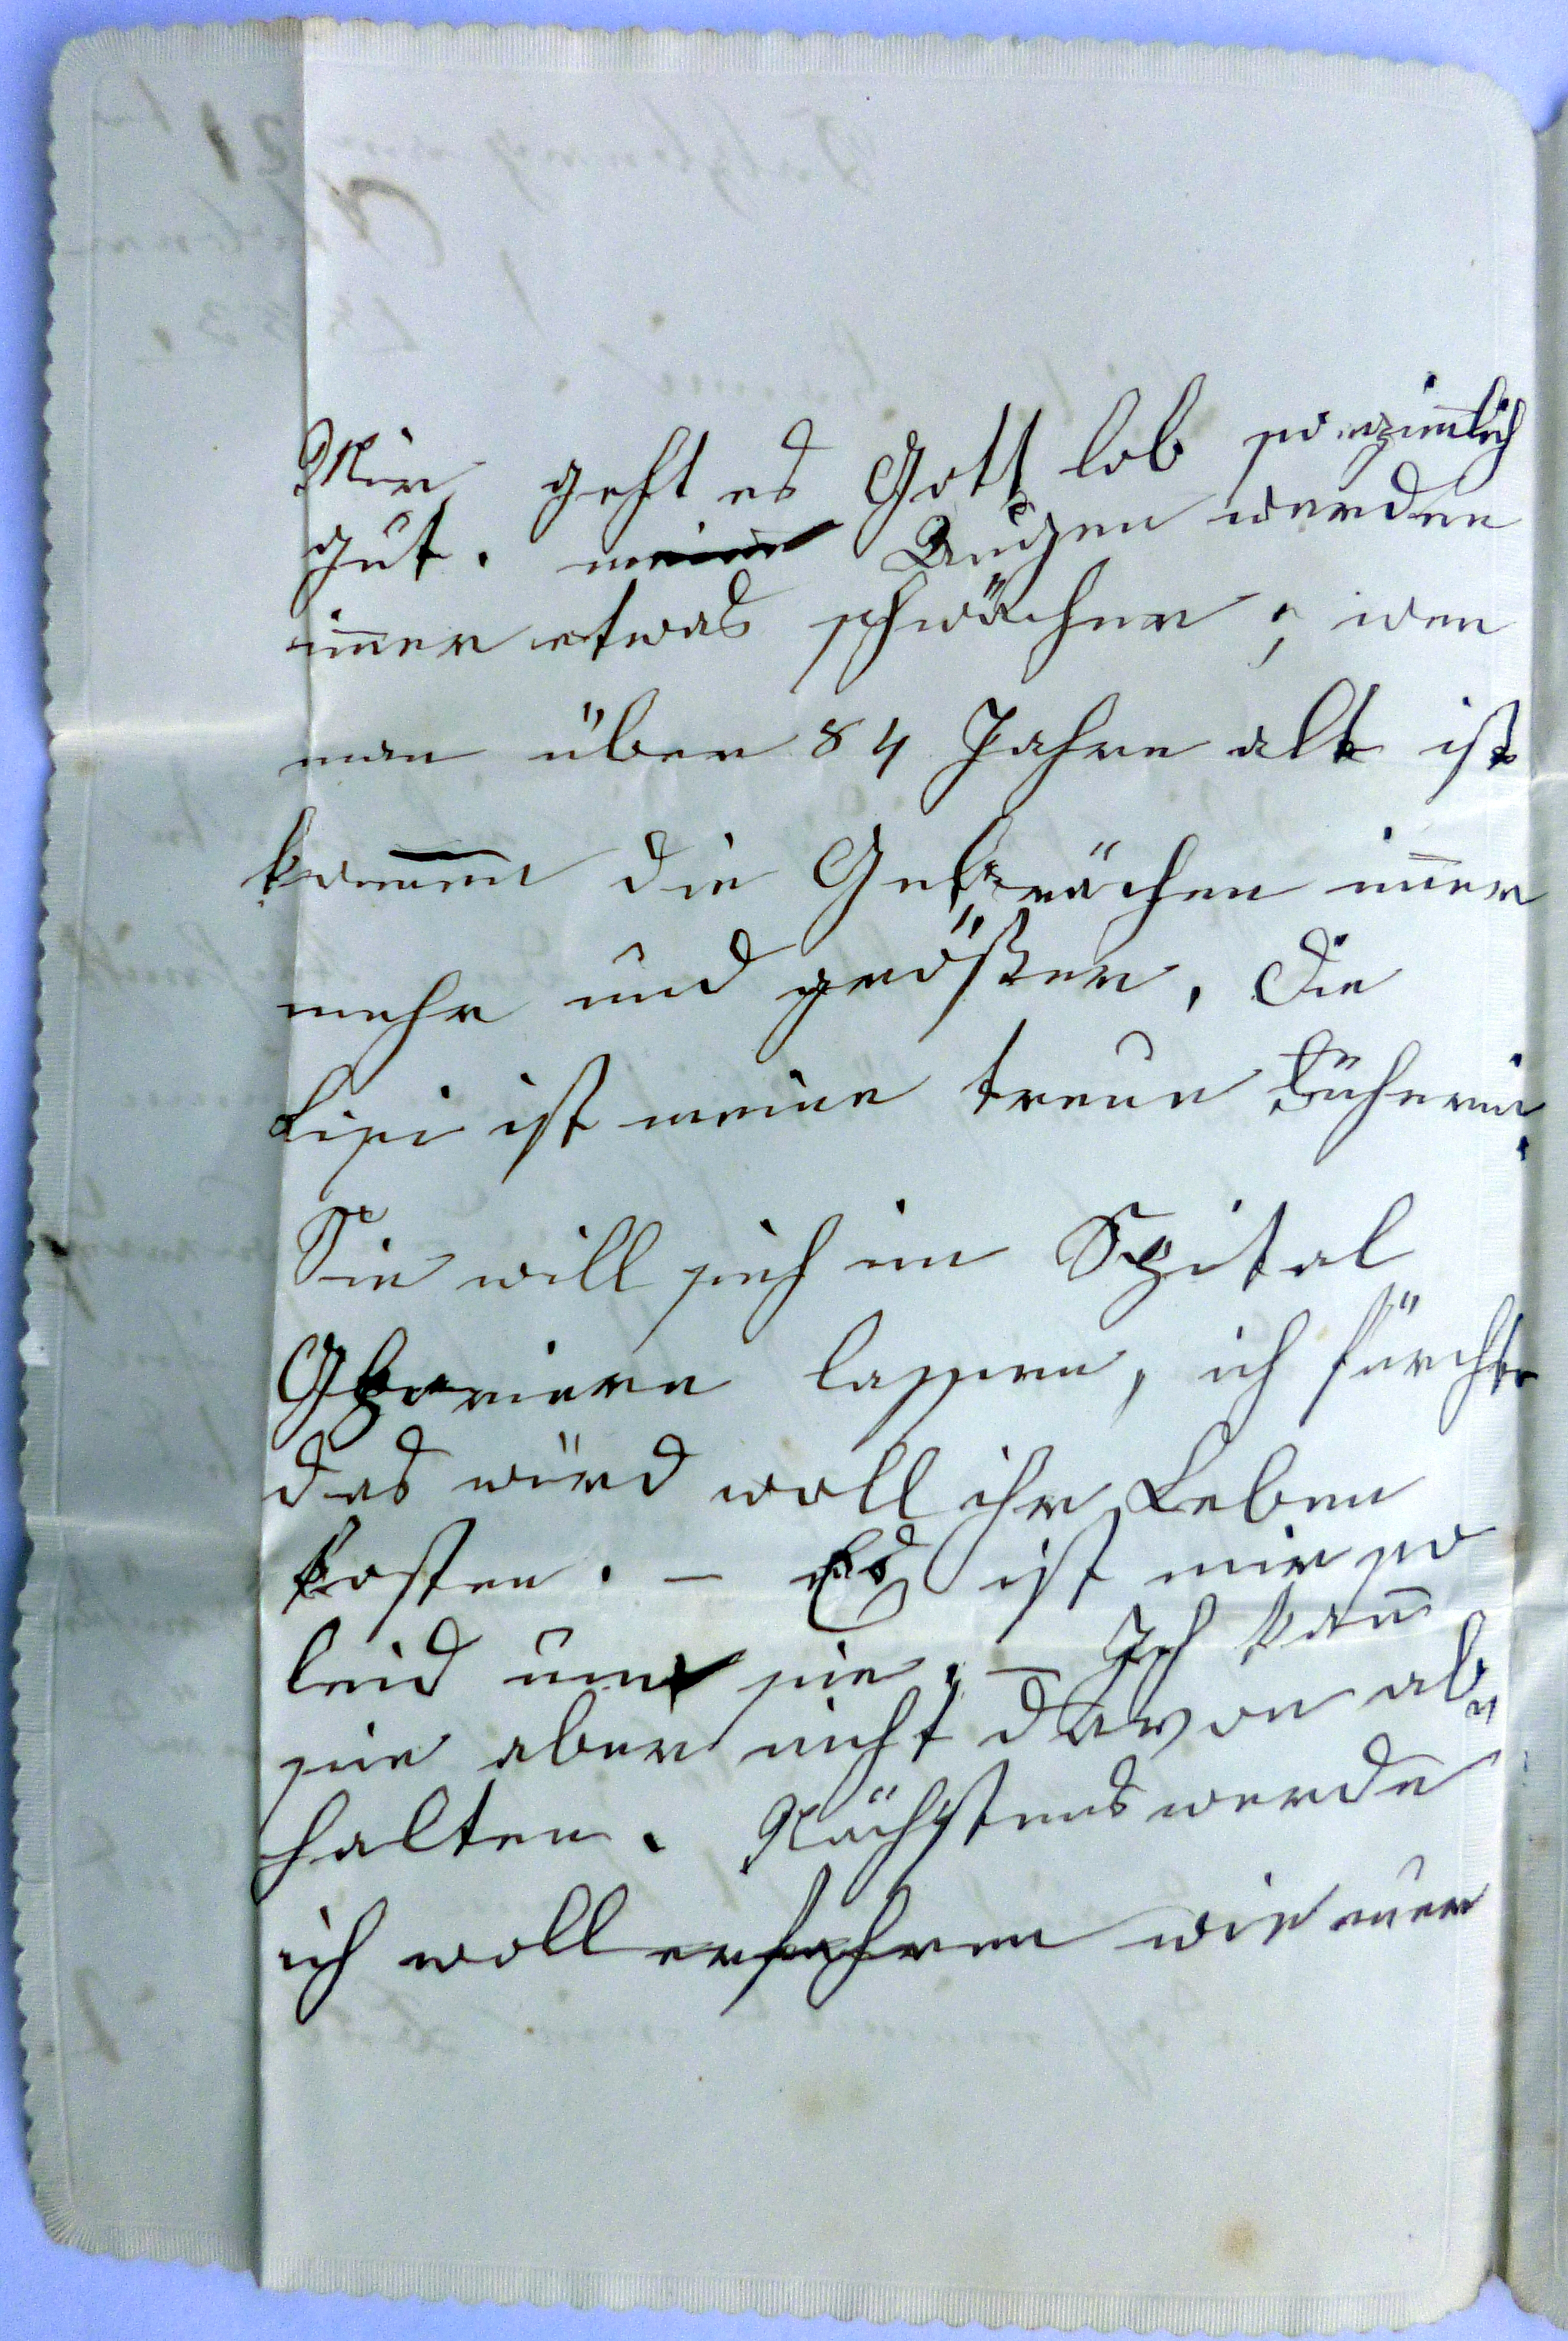 Mir geht es Gott lob so zimlich
gut. meine Augen werden
im̅er etwas schwächer; wen
man über 84 Jahre alt ist
kom̅en die Gebrächen im̅er
mehr und größer. Die
Lisi ist meine treue Führerin.
Sie will sich im Spital
Operieren lassen, ich fürchte
das würd woll ihr Leben
kosten. – Es ist mir so
leid um sie. – Ich kan̅
sie aber nicht davon ab„
halten. Nächstens werde
ich woll erfahren wie